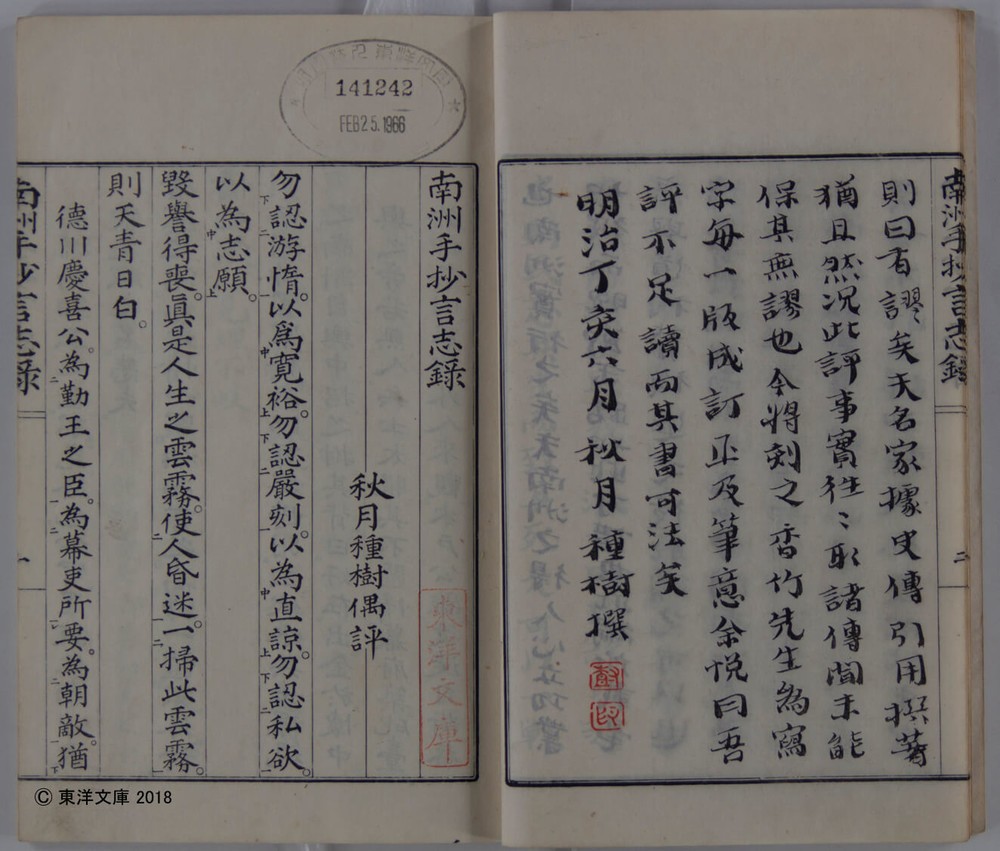 南洲手抄言志錄
二
則曰有謬矣夫名家據史傳引用撰著
猶且然况此評事實徃〻取諸傳聞未能
保其無謬也今將刻之香竹先生為寫
字每一版成訂正及筆意余悅曰吾
評不足讀而其書可法矣
明治丁亥六月 秋月種樹撰
141242
FEB 25. 1966
南洲手抄言志錄
東洋文庫
秋月種樹偶評
勿認游惰。以爲寛裕。勿認嚴刻。以為直諒。勿認私欲。
以為志願。
毀譽得喪。眞是人生之雲霧。使人昏迷。一掃此雲霧。
則天青日白。
德川慶喜公。為勤王之臣。為幕吏所要。為朝敵。猶
南洲手抄言志錄
一
© 東洋文庫 2018